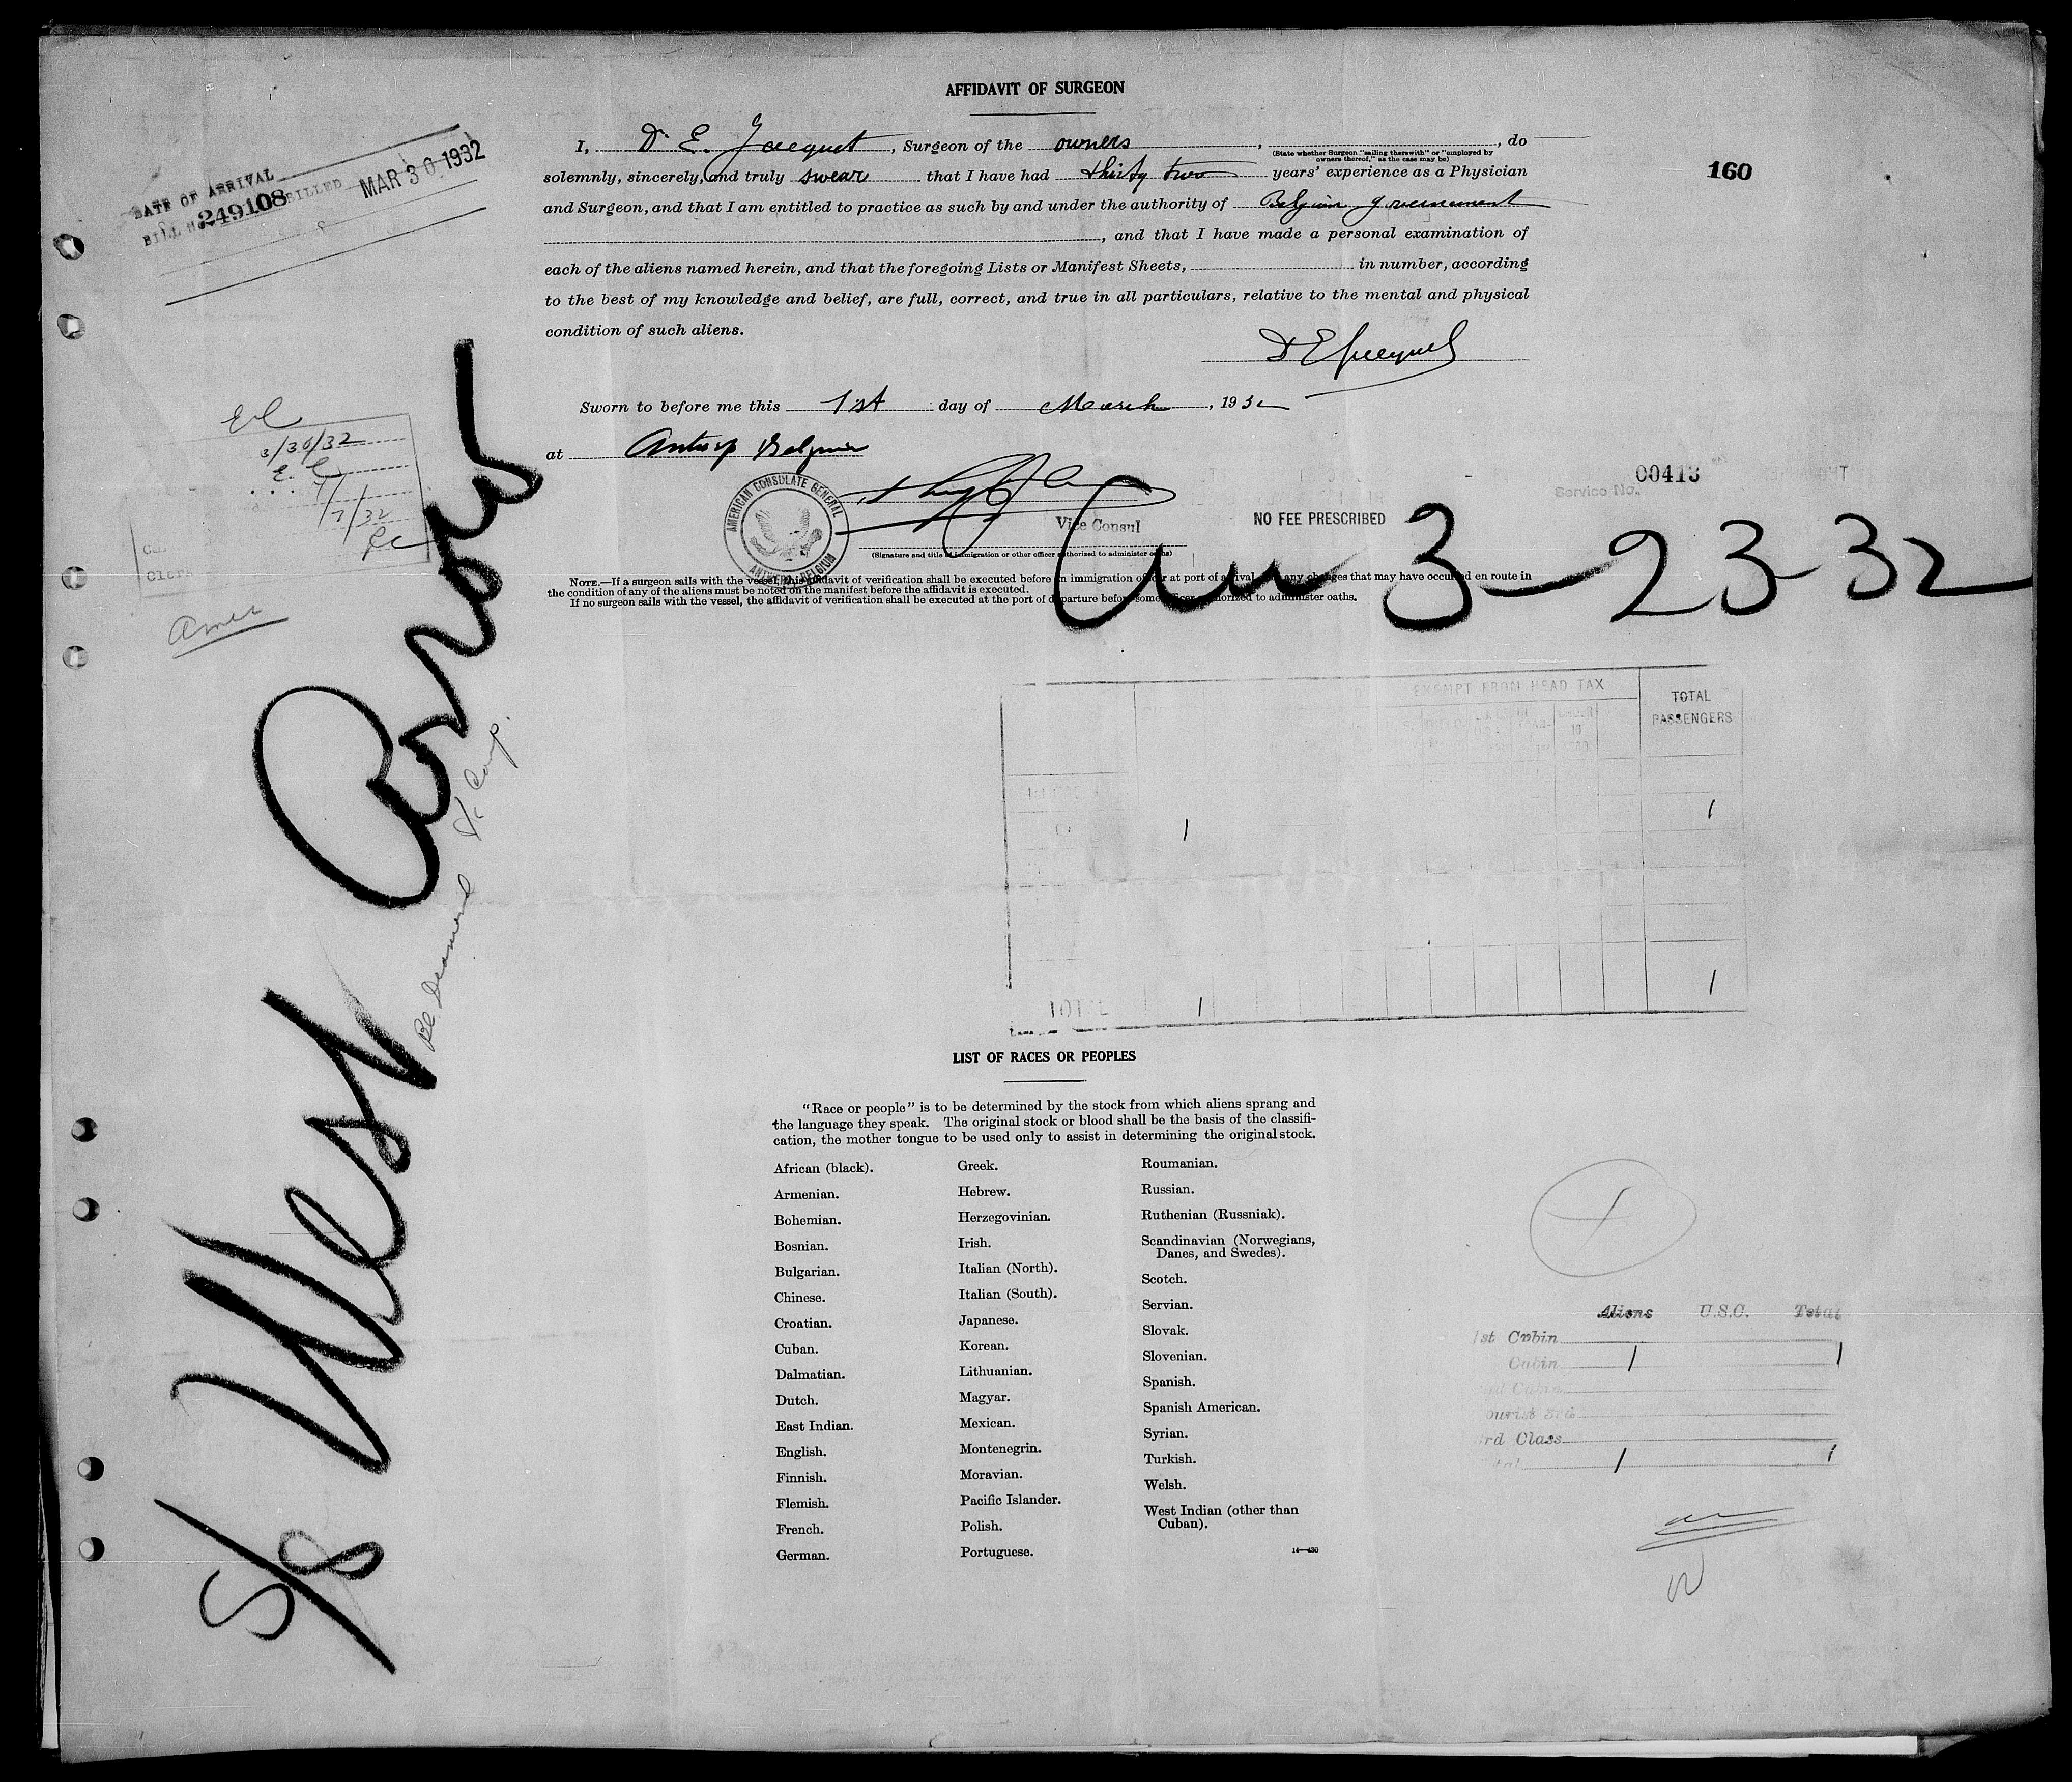 AFFIDAVIT OF SURGEON
I, Dr E. Jacquet, Surgeon of the owners, , do
(State whether Surgeon "sailing therewith" or "employed by
owners thereof," as the case may be)
solemnly, sincerely, and truly swear that I have had thirty two years' experience as a Physician
and Surgeon, and that I am entitled to practice as such by and under the authority of Belgian government
, and that I have made a personal examination of
each of the aliens named herein, and that the foregoing Lists or Manifest Sheets, in number, according
to the best of my knowledge and belief, are full, correct, and true in all particulars, relative to the mental and physical
condition of such aliens.
Dr E Jacquet
Sworn to before me this 1st day of March, 1932
at Antwerp Belgium
AMERICAN CONSULATE GENERAL
ANTWERP, BELGIUM
Vice Consul
(Signature and title of immigration or other officer authorized to administer oaths)
NO FEE PRESCRIBED
NOTE.—If a surgeon sails with the vessel, this affidavit of verification shall be executed before an immigration officer at port of arrival and any changes that may have occurred en route in
the condition of any of the aliens must be noted on the manifest before the affidavit is executed.
If no surgeon sails with the vessel, the affidavit of verification shall be executed at the port of departure before some officer authorized to administer oaths.
160
DATE OF ARRIVAL
BILL No. 249108 BILLED MAR 30 1932
3/30/32
Clerk
Amer
00413
Service No.
Arr 3-23-32
S/S West Arrow
EXEMPT FROM HEAD TAX
TOTAL
PASSENGERS
1
1
1
TOTAL 1
LIST OF RACES OR PEOPLES
"Race or people" is to be determined by the stock from which aliens sprang and
the language they speak. The original stock or blood shall be the basis of the classifi-
cation, the mother tongue to be used only to assist in determining the original stock.
African (black).
Armenian.
Bohemian.
Bosnian.
Bulgarian.
Chinese.
Croatian.
Cuban.
Dalmatian.
Dutch.
East Indian.
English.
Finnish.
Flemish.
French.
German.
Greek.
Hebrew.
Herzegovinian.
Irish.
Italian (North).
Italian (South).
Japanese.
Korean.
Lithuanian.
Magyar.
Mexican.
Montenegrin.
Moravian.
Pacific Islander.
Polish.
Portuguese.
Roumanian.
Russian.
Ruthenian (Russniak).
Scandinavian (Norwegians,
Danes, and Swedes).
Scotch.
Servian.
Slovak.
Slovenian.
Spanish.
Spanish American.
Syrian.
Turkish.
Welsh.
West Indian (other than
Cuban).
14—430
Aliens U.S.C. Total
1st Cabin
Cabin 1 1
Cabin
ourist 3rd
rd Class
1 1